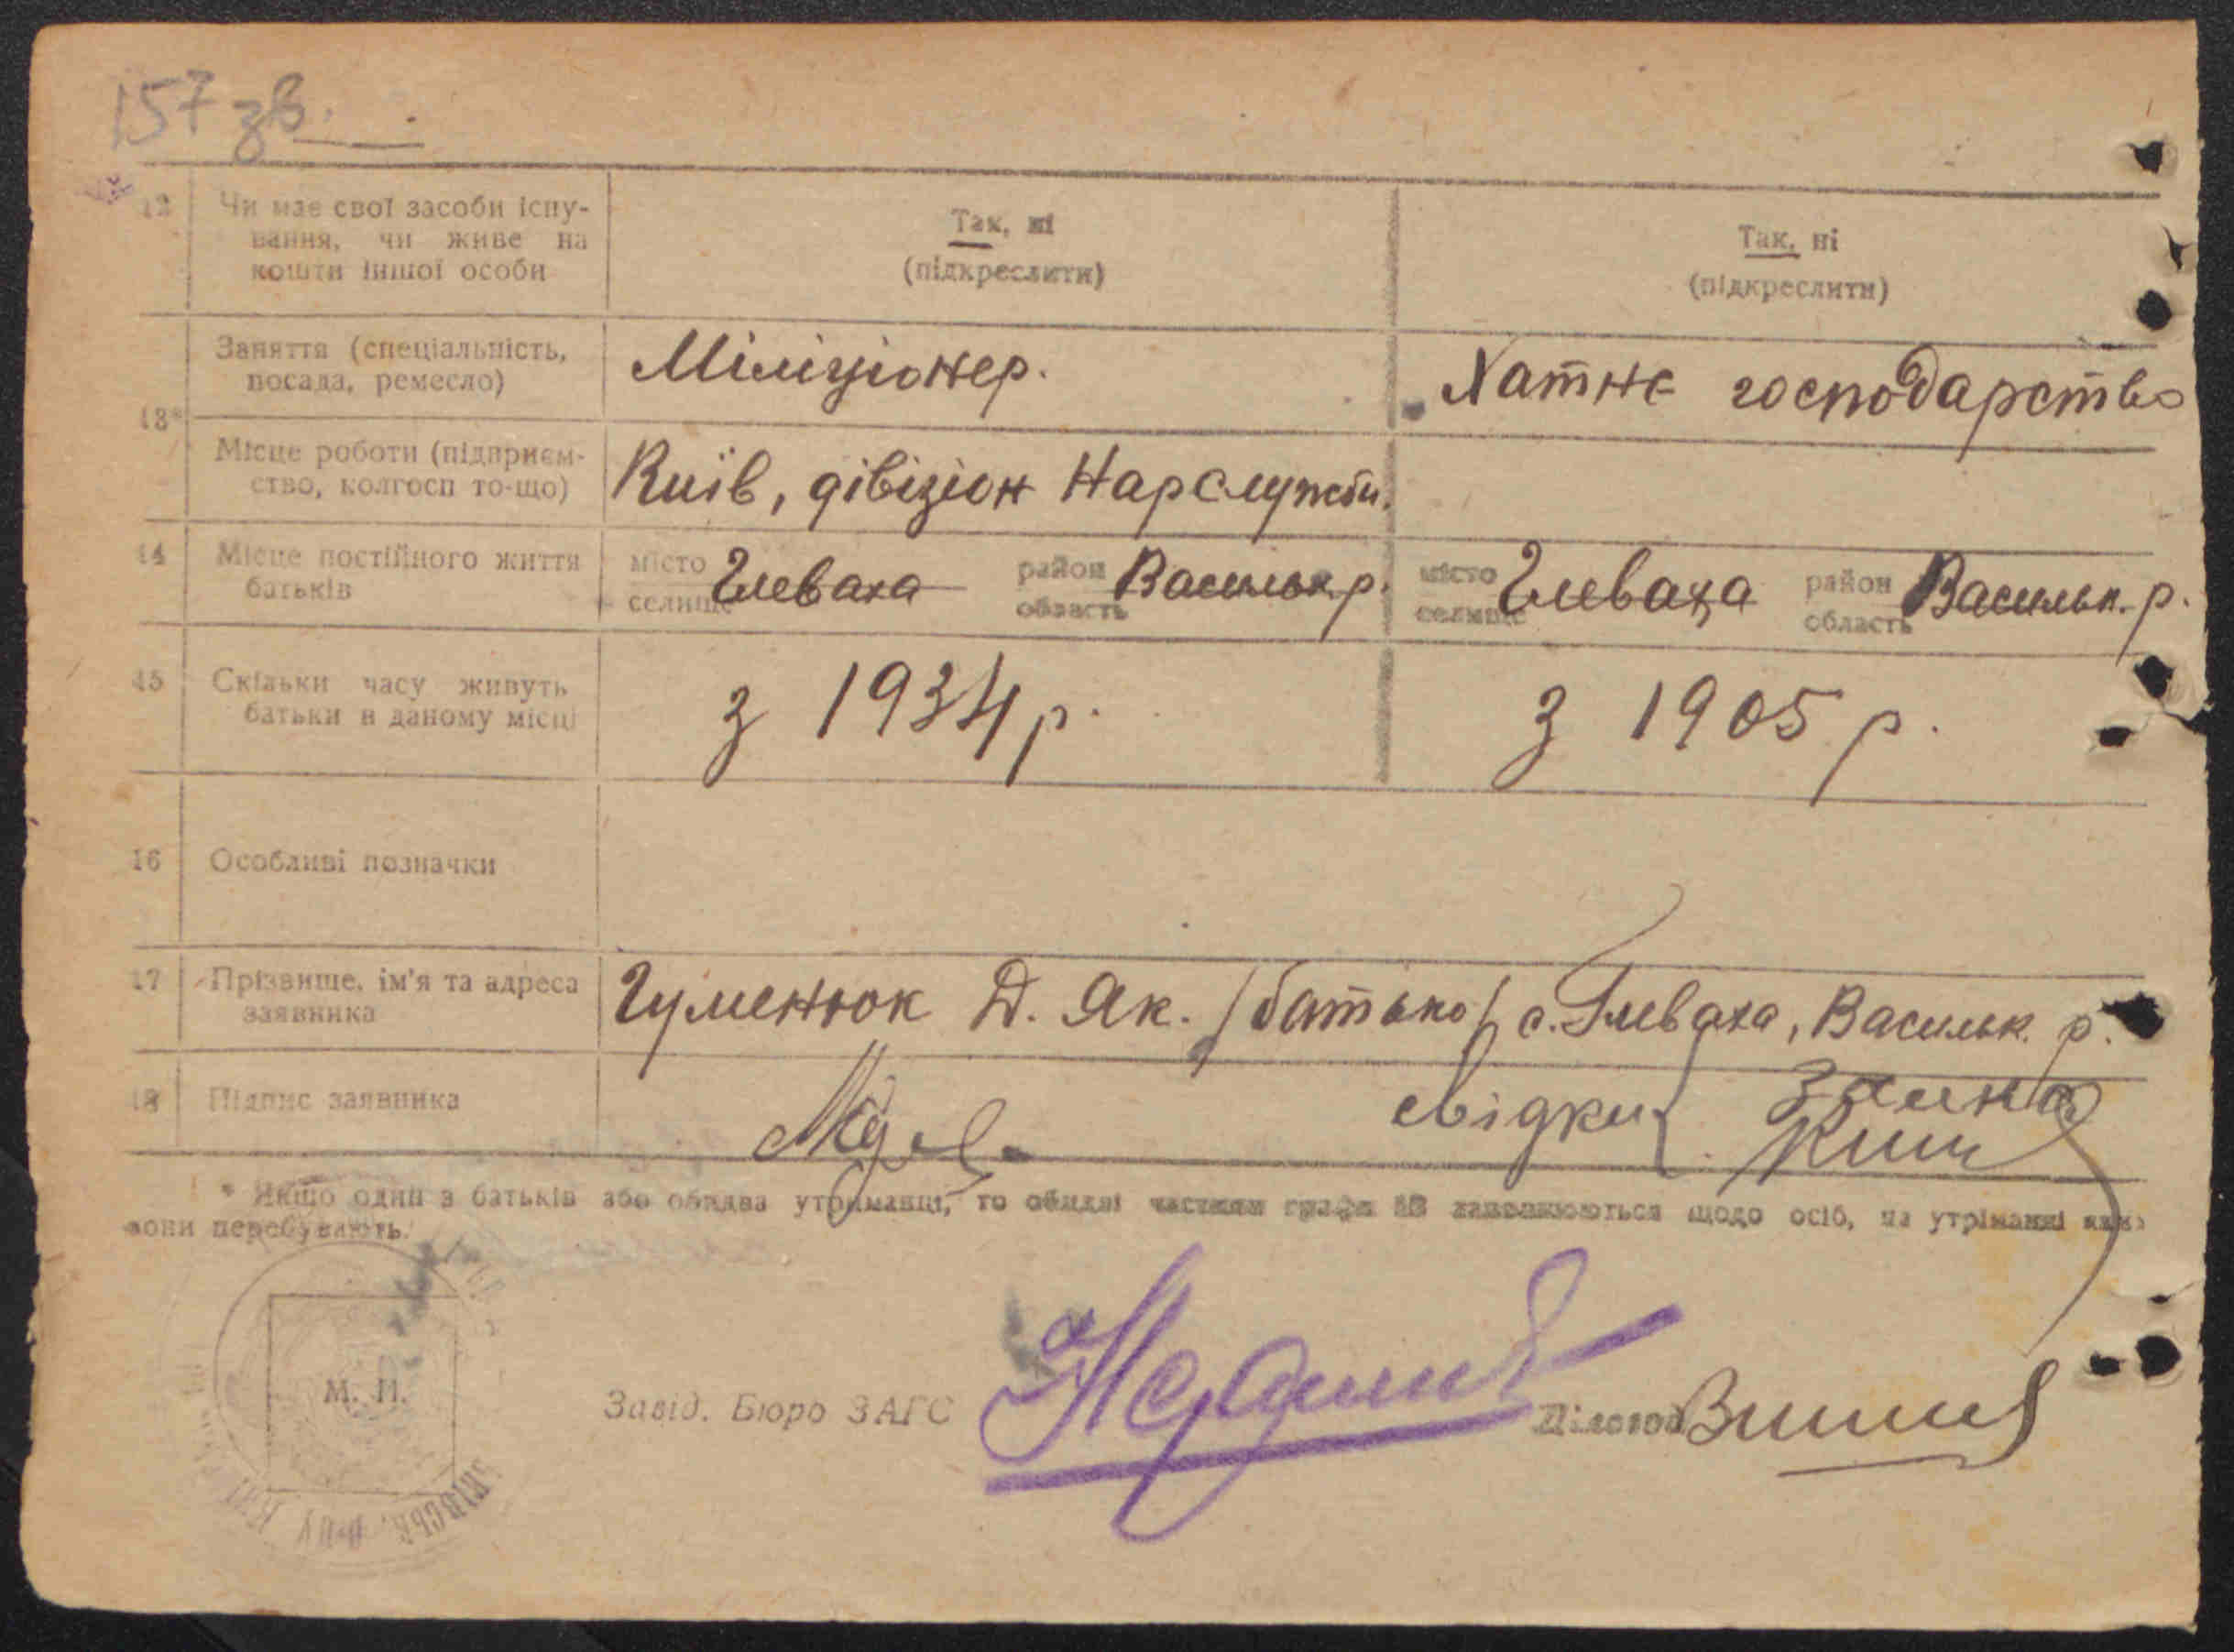 157 зв.
12 Чи має свої засоби існу-
вання, чи живе на
кошти іншої особи
Так, ні
(підкреслити)
Так, ні
(підкреслити)
13* Заняття (спеціальність,
посада, ремесло)
Міліціонер.
Хатнє господарство
Місце роботи (підприєм-
ство, колгосп то-що)
Київ, дівізіон Нарслужби.
14 Місце постійного життя
батьків
місто
селище
Глеваха
район
область
Васильк р.
місто
селище
Глеваха
район
область
Васильк. р.
15 Скільки часу живуть
батьки в даному місці
з 1934 р.
з 1905 р.
16 Особливі позначки
17 Прізвище, ім'я та адреса
заявника
Гуменюк Д. Як. /батько/ с. Глеваха, Васильк. р.
18 Підпис заявника
свідки
* Якщо один з батьків або обидва утриманці, то обидві частини графи 13 заповнюються щодо осіб, на утриманні яких
вони перебувають.
М. П.
Завід. Бюро ЗАГС
Діловод